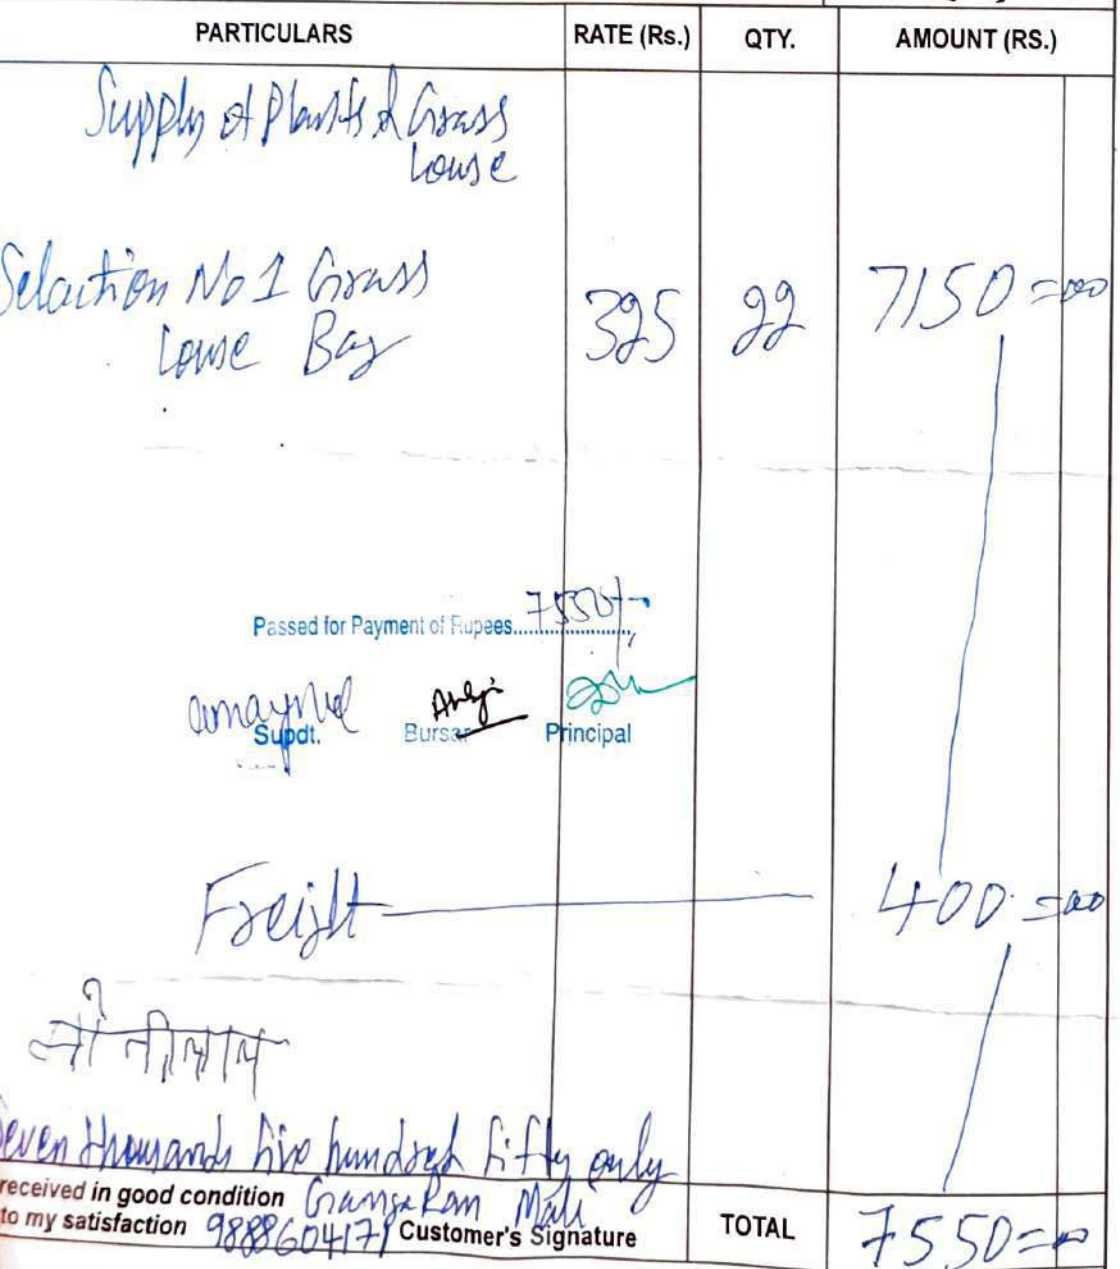 PARTICULARS RATE (Rs.) QTY. AMOUNT (RS.)
Supply of Plants & Grass
Louse
Selaction No 1 Grass
Louse Bag 325 22 7150=00
Passed for Payment of Rupees 7550/-
Supdt. Bursar Principal
Freight 400=00
Seven thousands five hundred fifty only
received in good condition Ganga Ram Mali
to my satisfaction 9888604171 Customer's Signature TOTAL 7550=00